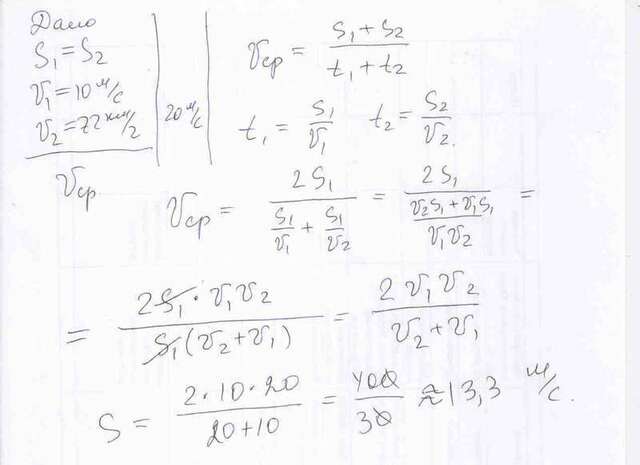 Дано
S₁ = S₂
v₁ = 10 м/с
v₂ = 72 км/ч | 20 м/с
vср
vср = (S₁ + S₂)/(t₁ + t₂)
t₁ = S₁/v₁ t₂ = S₂/v₂.
vср = 2S₁/(S₁/v₁ + S₁/v₂) = 2S₁/((v₂S₁ + v₁S₁)/(v₁v₂)) =
= (2S₁ · v₁v₂)/(S₁(v₂ + v₁)) = (2v₁v₂)/(v₂ + v₁)
S = (2 · 10 · 20)/(20 + 10) = 400/30 ≈ 13,3 м/с.